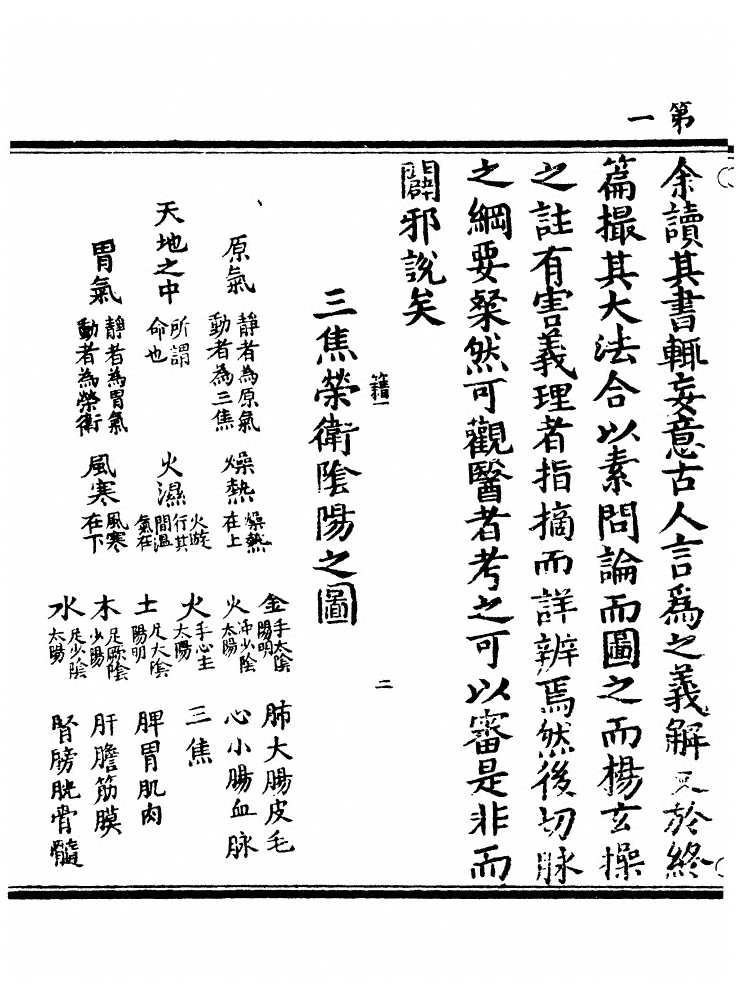 第一
余讀其書輒妄意古人言爲之義解又於終
篇撮其大法合以素問論而圖之而楊玄操
之註有害義理者指摘而詳辨焉然後切脉
之綱要粲然可觀醫者考之可以審是非而
闢邪說矣
籍一
二
三焦榮衛陰陽之圖
原氣 靜者為原氣 動者為三焦 燥熱 燥熱在上
天地之中 所謂命也 火濕 火游行其間濕氣在
胃氣 靜者為胃氣 動者為榮衛 風寒 風寒在下
金 手太陰 陽明 肺大腸皮毛
火 少陰 太陽 心小腸血脉
火 手心主 太陽 三焦
土 足太陰 陽明 脾胃肌肉
木 足厥陰 少陽 肝膽筋膜
水 足少陰 太陽 腎膀胱骨髓